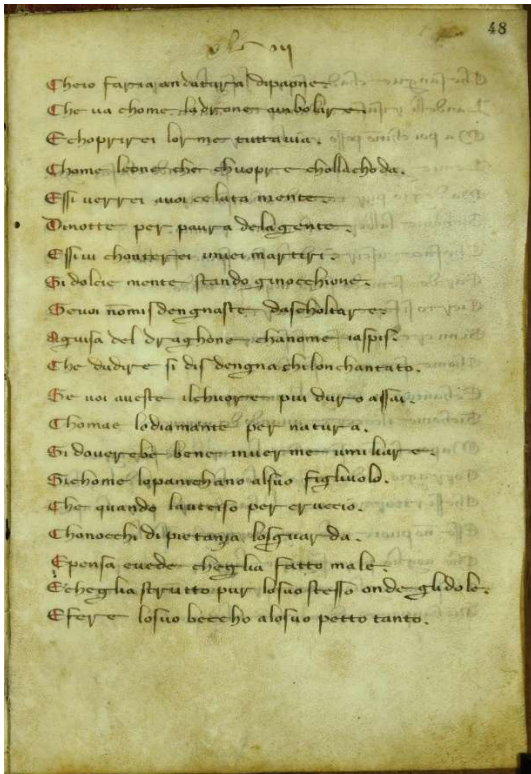 48
Cheio faria andatura dipaone.
Che ua chome ladrone ainbolare.
Echoprirei lorme tuttauia.
Chome leone che chuopre chollachoda.
Essi uerrei auoi celata mente.
Dinotte per paura delagente.
Essiui chonterei imiei martiri.
Si dolcie mente stando ginocchione.
Seuoi nomisdengnaste dascholtare.
Aguisa del draghone chanome iaspis.
Che dudire si disdengna chilonchantato.
Se uoi aueste ilchuore piu duro assai.
Chomae lodiamante per natura.
Si douerebe bene inuerme umiliare.
Sichome lopancehano alsuo figliuolo.
Che quando lauciso per cruccio.
Chonocchi di pietanza losguarda.
Epensa euede cheglia fatto male.
Echeglia strutto pur losuo stesso onde glidole.
Efere losuo beccho alosuo petto tanto.